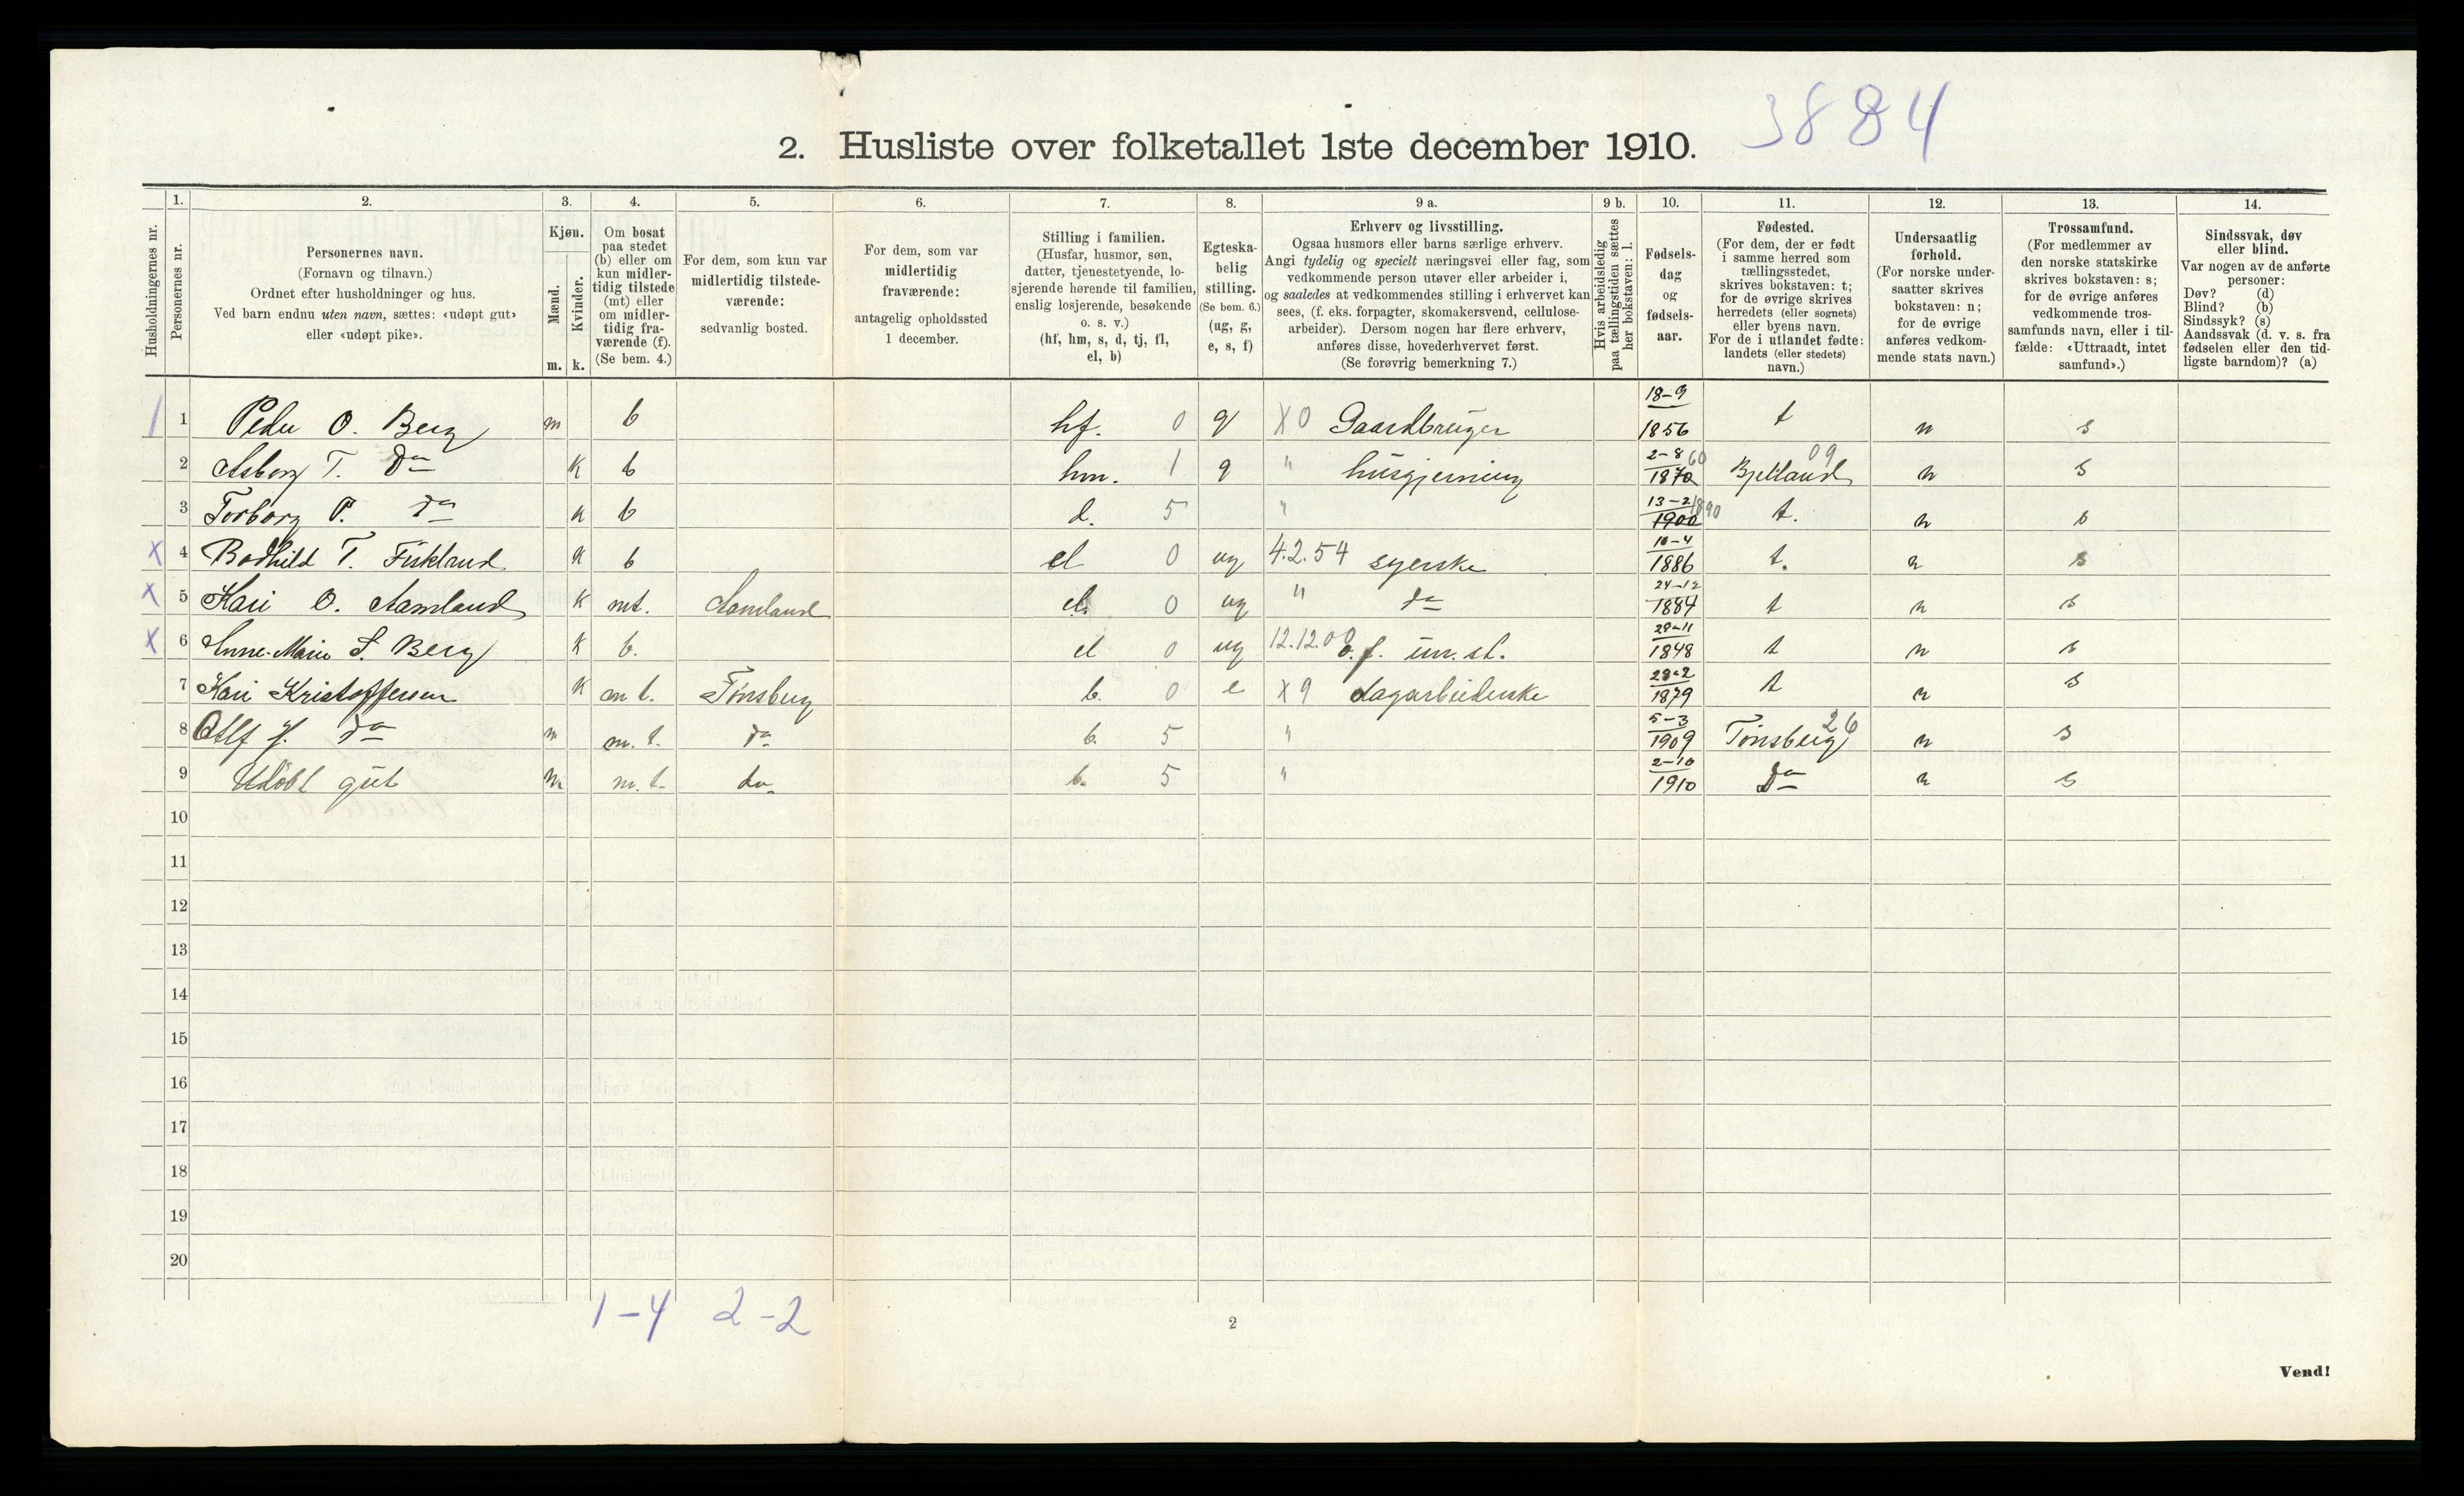 3884
2. Husliste over folketallet 1ste december 1910.
Husholdningernes nr.
1.
Personernes nr.
2.
Personernes navn.
(Fornavn og tilnavn.)
Ordnet efter husholdninger og hus.
Ved barn endnu uten navn, sættes: «udøpt gut»
eller «udøpt pike».
3.
Kjøn.
Mænd.
Kvinder.
m. k.
4.
Om bosat
paa stedet
(b) eller om
kun midler-
tidig tilstede
(mt) eller
om midler-
tidig fra-
værende (f).
(Se bem. 4.)
5.
For dem, som kun var
midlertidig tilstede-
værende:
sedvanlig bosted.
6.
For dem, som var
midlertidig
fraværende:
antagelig opholdssted
1 december.
7.
Stilling i familien.
(Husfar, husmor, søn,
datter, tjenestetyende, lo-
sjerende hørende til familien,
enslig losjerende, besøkende
o. s. v.)
(hf, hm, s, d, tj, fl,
el, b)
8.
Egteska-
belig
stilling.
(Se bem. 6.)
(ug, g,
e, s, f)
9 a.
Erhverv og livsstilling.
Ogsaa husmors eller barns særlige erhverv.
Angi tydelig og specielt næringsvei eller fag, som
vedkommende person utøver eller arbeider i,
og saaledes at vedkommendes stilling i erhvervet kan
sees, (f. eks. forpagter, skomakersvend, cellulose-
arbeider). Dersom nogen har flere erhverv,
anføres disse, hovederhvervet først.
(Se forøvrig bemerkning 7.)
9 b.
Hvis arbeidsledig
paa tællingstiden sættes
her bokstaven: l.
10.
Fødsels-
dag
og
fødsels-
aar.
11.
Fødested.
(For dem, der er født
i samme herred som
tællingsstedet,
skrives bokstaven: t;
for de øvrige skrives
herredets (eller sognets)
eller byens navn.
For de i utlandet fødte:
landets (eller stedets)
navn.)
12.
Undersaatlig
forhold.
(For norske under-
saatter skrives
bokstaven: n;
for de øvrige
anføres vedkom-
mende stats navn.)
13.
Trossamfund.
(For medlemmer av
den norske statskirke
skrives bokstaven: s;
for de øvrige anføres
vedkommende tros-
samfunds navn, eller i til-
fælde: «Uttraadt, intet
samfund».)
14.
Sindssvak, døv
eller blind.
Var nogen av de anførte
personer:
Døv? (d)
Blind? (b)
Sindssyk? (s)
Aandssvak (d. v. s. fra
fødselen eller den tid-
ligste barndom)? (a)
1 1 Peder O. Berg m b hf. 0 g X0 Gaardbruger 18-9 1856 t n s
2 Asborg T. Do K b hm. 1 g " husgjerning 2-8 1870 60 Bjelland 09 n s
3 Torborg P. do K b d. 5 " 13-2 1900 1890 t. n s
X 4 Bodhild T. Fiskland K b el 0 ug 4.2.54 syerske 10-4 1886 t. n s
X 5 Kari O. Aamland K mt. Aamland el. 0 ug " do 24-12 1884 t n s
X 6 Anne-Marie S. Berg K b. el 0 ug 12.12.00 o. f. un. st. 29-11 1848 t n s
7 Kari Kristoffersen K mt. Tønsberg b. 0 e X9 dagarbeiderske 29-2 1879 t n s
8 Alf H. do m m. t. do b. 5 " 5-3 1909 Tønsberg 26 n s
9 Udøbt gut m m. t. do. b. 5 " 2-10 1910 Do n s
10
11
12
13
14
15
16
17
18
19
20
1-4 2-2
2
Vend!